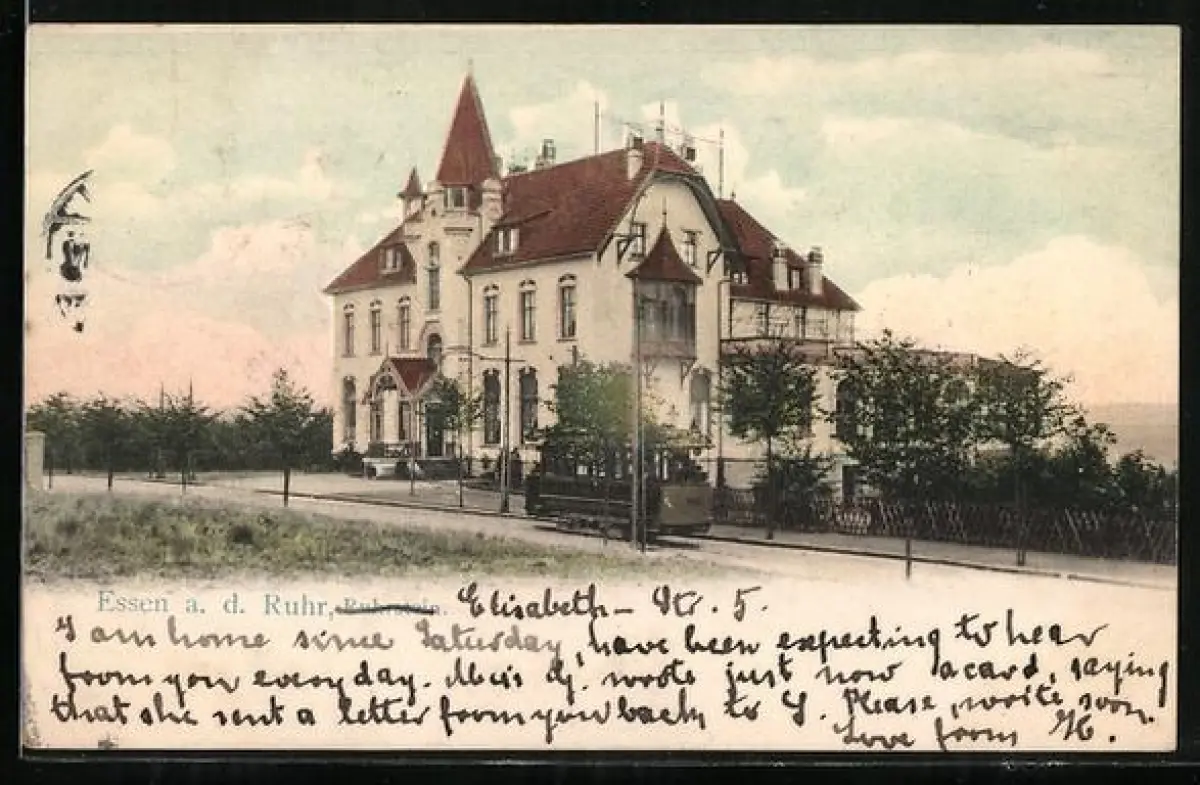 Essen a. d. Ruhr, Ruhrstein. Elisabeth-Str. 5.
I am home since Saturday, have been expecting to hear
from you every day. Miss G. wrote just now a card, saying
that she sent a letter from you back to G. Please, write soon.
Love from H.